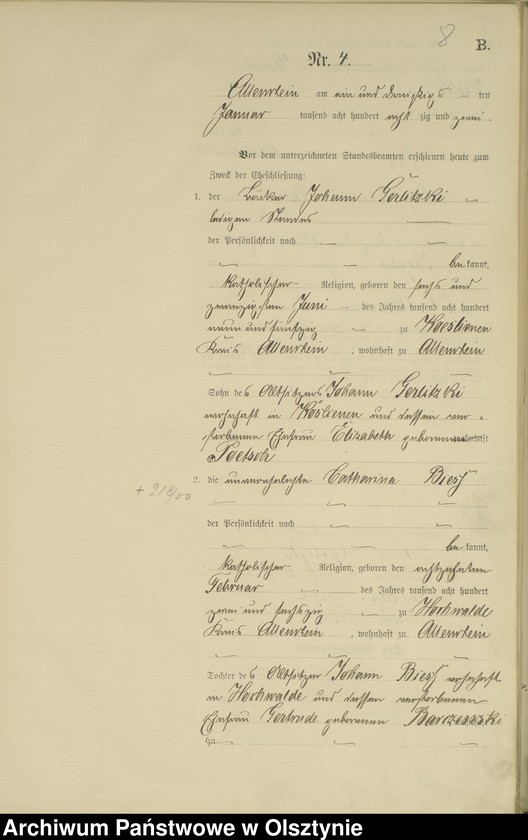 8
B.
Nr. 4.
Allenstein am ein und dreißigs ten
Januar tausend acht hundert acht zig und zwei.
Vor dem unterzeichneten Standesbeamten erschienen heute zum
Zweck der Eheschließung:
1. der Bäcker Johann Gerlitzki
ledigen Standes
der Persönlichkeit nach
be kannt,
katholischer Religion, geboren den sechs und
zwanzigsten Juni des Jahres tausend acht hundert
neun und fünfzig zu Koeslienen
Kreis Allenstein, wohnhaft zu Allenstein
Sohn des Altsitzers Johann Gerlitzki
wohnhaft in Köslienen und dessen ver-
storbenen Ehefrau Elizabeth geborenen wohnhaft
Poetsch
2. die unverehelichte Catharina Bieß
+ 218/00
der Persönlichkeit nach
be kannt,
katholischer Religion, geboren den achtzehnten
Februar des Jahres tausend acht hundert
zwei und sechszig zu Hochwalde
Kreis Allenstein, wohnhaft zu Allenstein
Tochter des Altsitzer Johann Bieß wohnhaft
in Hochwalde und dessen verstorbenen
Ehefrau Gertrude geborenen Barczewski
zu
Archiwum Państwowe w Olsztynie